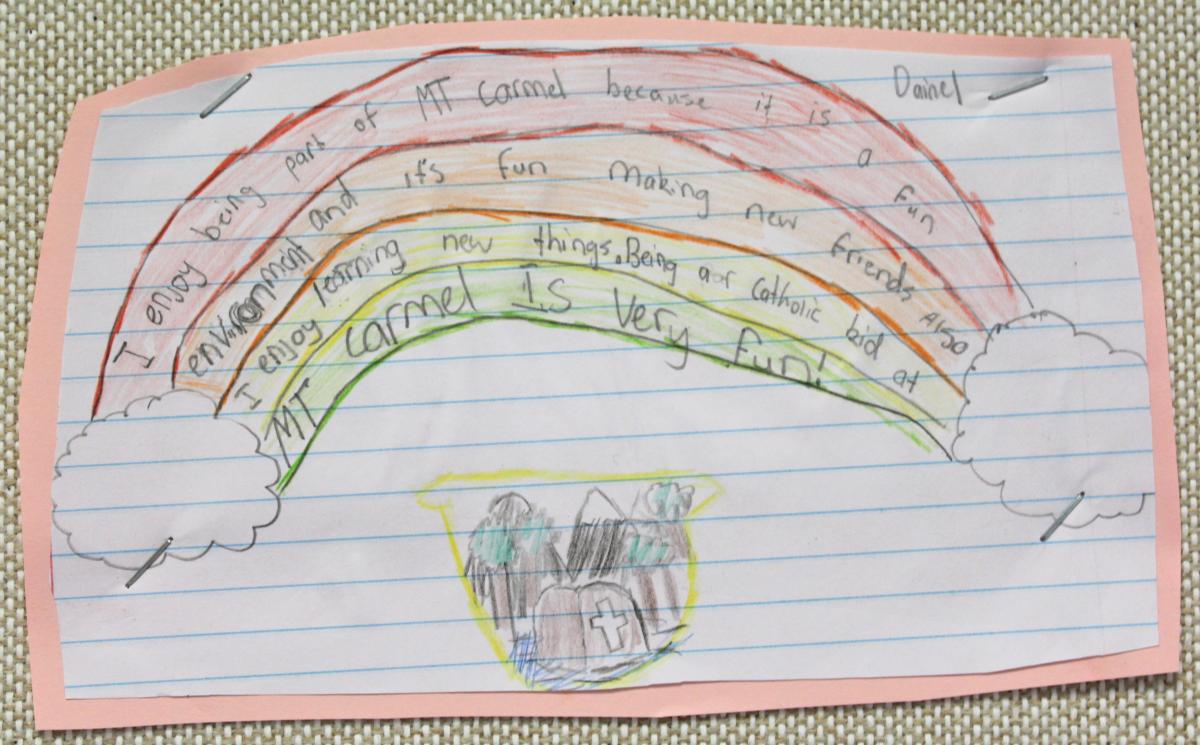 Dainel
I enjoy being part of MT Carmel because it is a fun
and it's fun Making new friends Also
I enjoy learning new things. Being a Catholic bid at
MT Carmel Is Very fun!